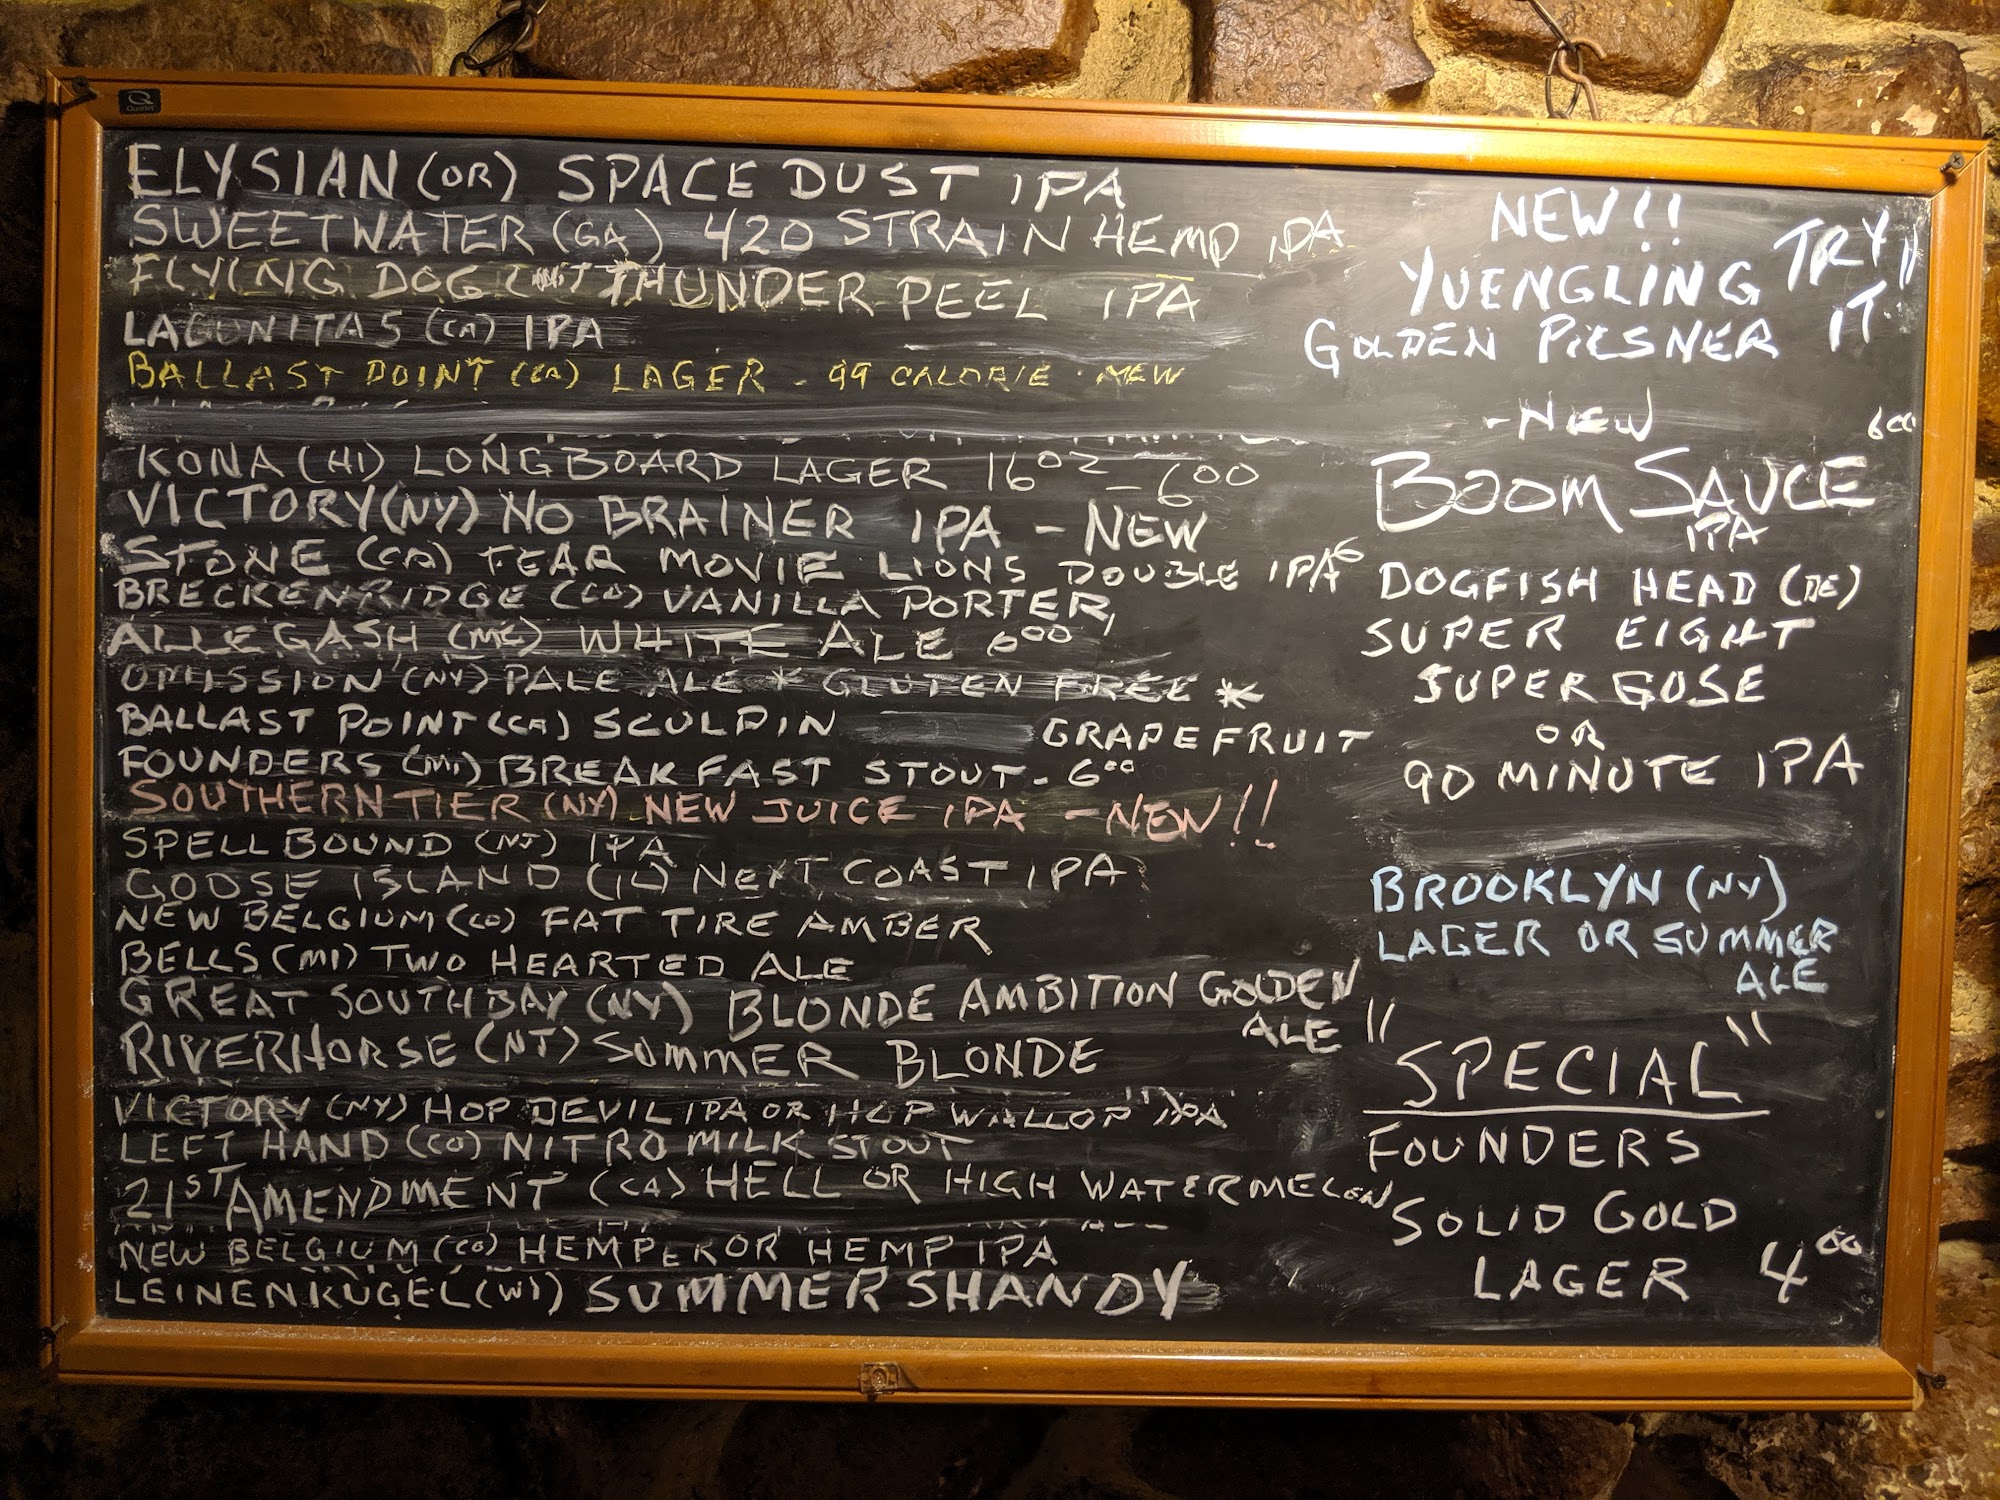 ELYSIAN (OR) SPACE DUST IPA
SWEETWATER (GA) 420 STRAIN HEMP IPA
FLYING DOG THUNDER PEEL IPA
LAGUNITAS (CA) IPA
BALLAST POINT (CA) LAGER - 99 CALORIE - NEW
KONA (HI) LONGBOARD LAGER 16OZ - 6 00
VICTORY (NY) NO BRAINER IPA - NEW
STONE (CA) FEAR MOVIE LIONS DOUBLE IPA 6
BRECKENRIDGE (CO) VANILLA PORTER,
ALLEGASH (ME) WHITE ALE 6 00
OMISSION (NY) PALE ALE * GLUTEN FREE *
BALLAST POINT (CA) SCULPIN GRAPEFRUIT
FOUNDERS (MI) BREAKFAST STOUT - 6 00
SOUTHERN TIER (NY) NEW JUICE IPA - NEW!!
SPELLBOUND (NJ) IPA
GOOSE ISLAND (IL) NEXT COAST IPA
NEW BELGIUM (CO) FAT TIRE AMBER
BELLS (MI) TWO HEARTED ALE
GREAT SOUTHBAY (NY) BLONDE AMBITION GOLDEN
ALE
RIVERHORSE (NJ) SUMMER BLONDE
VICTORY (NY) HOP DEVIL IPA OR HOP WALLOP IPA
LEFT HAND (CO) NITRO MILK STOUT
21ST AMENDMENT (CA) HELL OR HIGH WATERMELON
NEW BELGIUM (CO) HEMPEROR HEMP IPA
LEINENKUGEL (WI) SUMMER SHANDY
NEW!!
YUENGLING TRY
GOLDEN PILSNER IT!!
- NEW 6 00
BOOM SAUCE
IPA
DOGFISH HEAD (DE)
SUPER EIGHT
SUPER GOSE
OR
90 MINUTE IPA
BROOKLYN (NY)
LAGER OR SUMMER
ALE
"SPECIAL"
FOUNDERS
SOLID GOLD
LAGER 4 00
Quartet